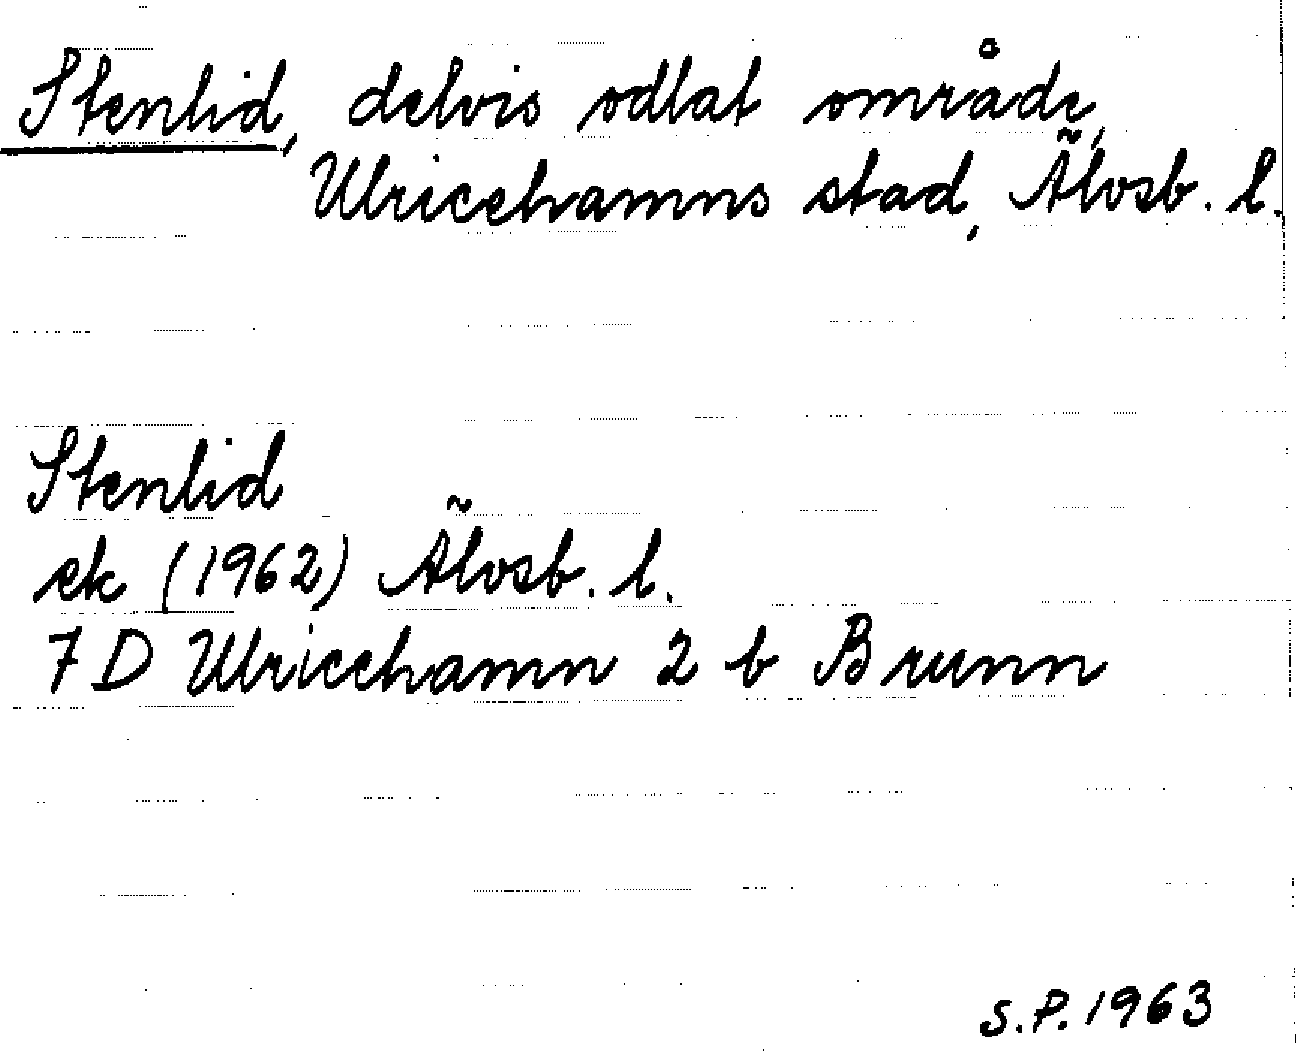 Stenlid, delvis odlat område,
Ulricehamns stad, Älvsb. l.
Stenlid
ek (1962) Älvsb. l.
7 D Ulricehamn 2 b Brunn
S.P. 1963